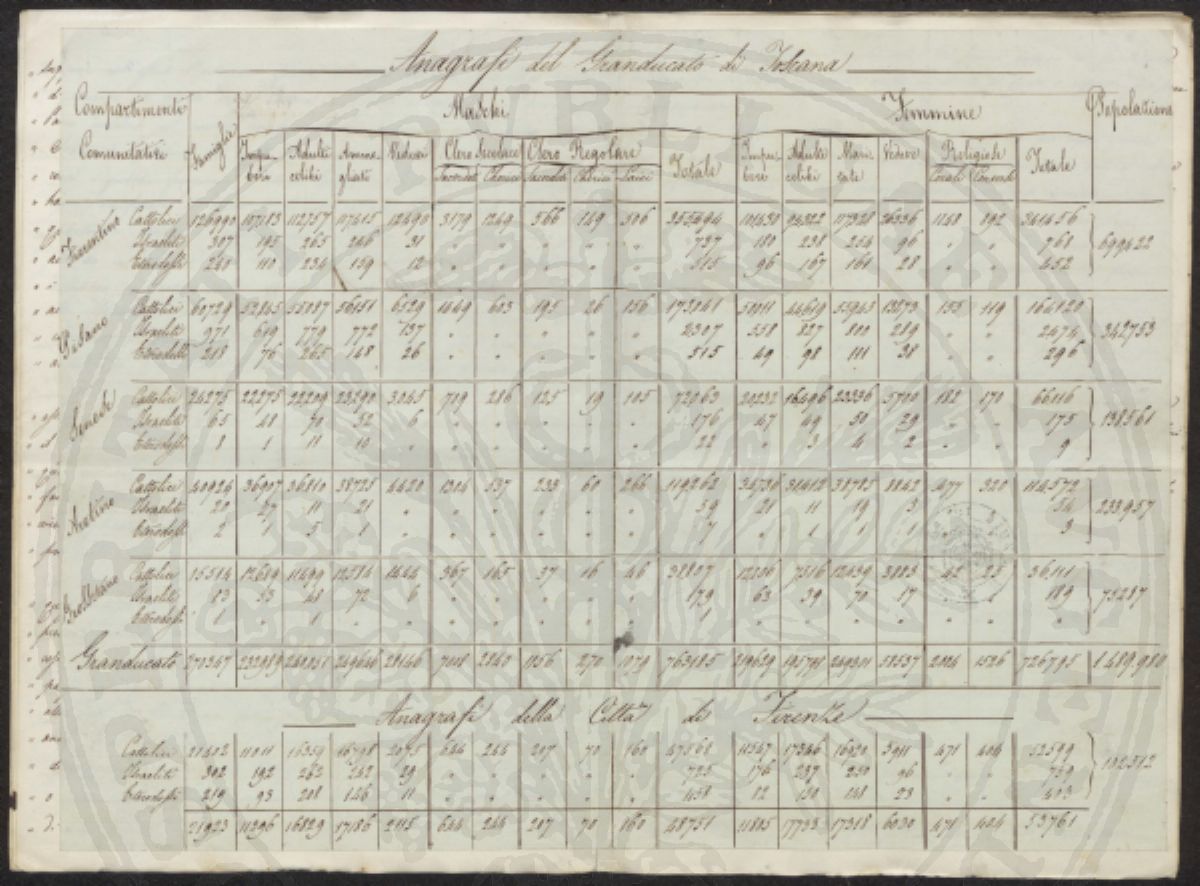 Anagrafi del Granducato di Toscana
Compartimenti Comunitativi Famiglie Maschi Femmine Popolazione
Impuberi Adulti celibi Ammogliati Vedovi Clero Secolare Clero Regolare Totale Impuberi Adulte celibi Maritate Vedove Religiose Totale
Sacerdoti Cherici Sacerdoti Cherici Laici Corali Converse
Fiorentino Cattolici 126990 107183 112757 117415 12490 3179 1249 566 149 506 355494 101430 94322 117328 26336 1148 892 341456 699422
Israeliti 307 195 265 246 31 " " " " " 737 180 238 254 96 " " 768
Eterodossi 240 110 234 159 12 " " " " " 515 96 167 161 28 " " 452
Pisano Cattolici 60729 52845 55087 56151 6529 1449 603 195 26 156 173041 50011 44619 55943 13273 155 119 164120 342753
Israeliti 971 619 779 772 137 " " " " " 2307 558 827 800 289 " " 2474
Eterodossi 218 76 265 148 26 " " " " " 515 49 98 111 38 " " 296
Senese Cattolici 24275 22275 22209 23290 3045 709 286 125 19 105 72063 20232 16496 23336 5700 182 170 66116 138561
Israeliti 65 48 70 52 6 " " " " " 176 47 49 50 29 " " 175
Eterodossi 8 1 11 10 " " " " " " 22 " 3 4 2 " " 9
Aretino Cattolici 40924 36907 36810 38725 4420 1304 537 233 60 266 119262 34736 31412 38785 8842 477 320 114572 233957
Israeliti 20 27 11 21 " " " " " " 59 21 11 19 3 " " 54
Eterodossi 2 1 5 1 " " " " " " 7 " 1 1 1 " " 3
Grossetano Cattolici 15514 12649 11499 12584 1444 367 165 37 16 46 38807 12206 7516 12439 3883 42 25 36111 75287
Israeliti 83 53 48 72 6 " " " " " 179 63 39 70 17 " " 189
Eterodossi 1 " 1 " " " " " " " 1 " " " " " " "
Granducato 270347 232989 240051 249646 28146 7008 2840 1156 270 1079 763185 219629 195798 249301 58537 2004 1526 726795 1,489,980
Anagrafi della Città di Firenze
Cattolici 21402 11011 16359 16798 2075 644 244 207 70 160 47568 11547 17346 16920 5911 471 404 52599 102512
Israeliti 302 192 262 242 29 " " " " " 725 176 237 250 96 " " 759
Eterodossi 219 93 208 146 11 " " " " " 458 82 150 148 23 " " 403
21923 11296 16829 17186 2115 644 244 207 70 160 48751 11805 17733 17318 6030 471 404 53761